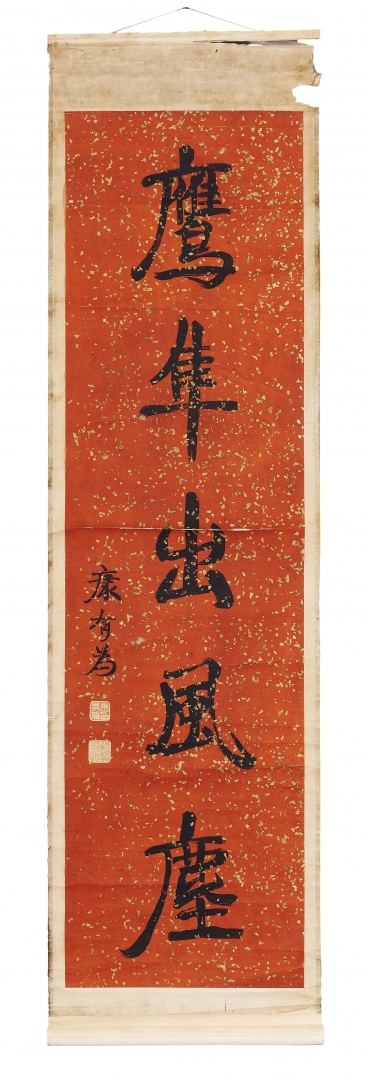 鷹隼出風塵
康有為